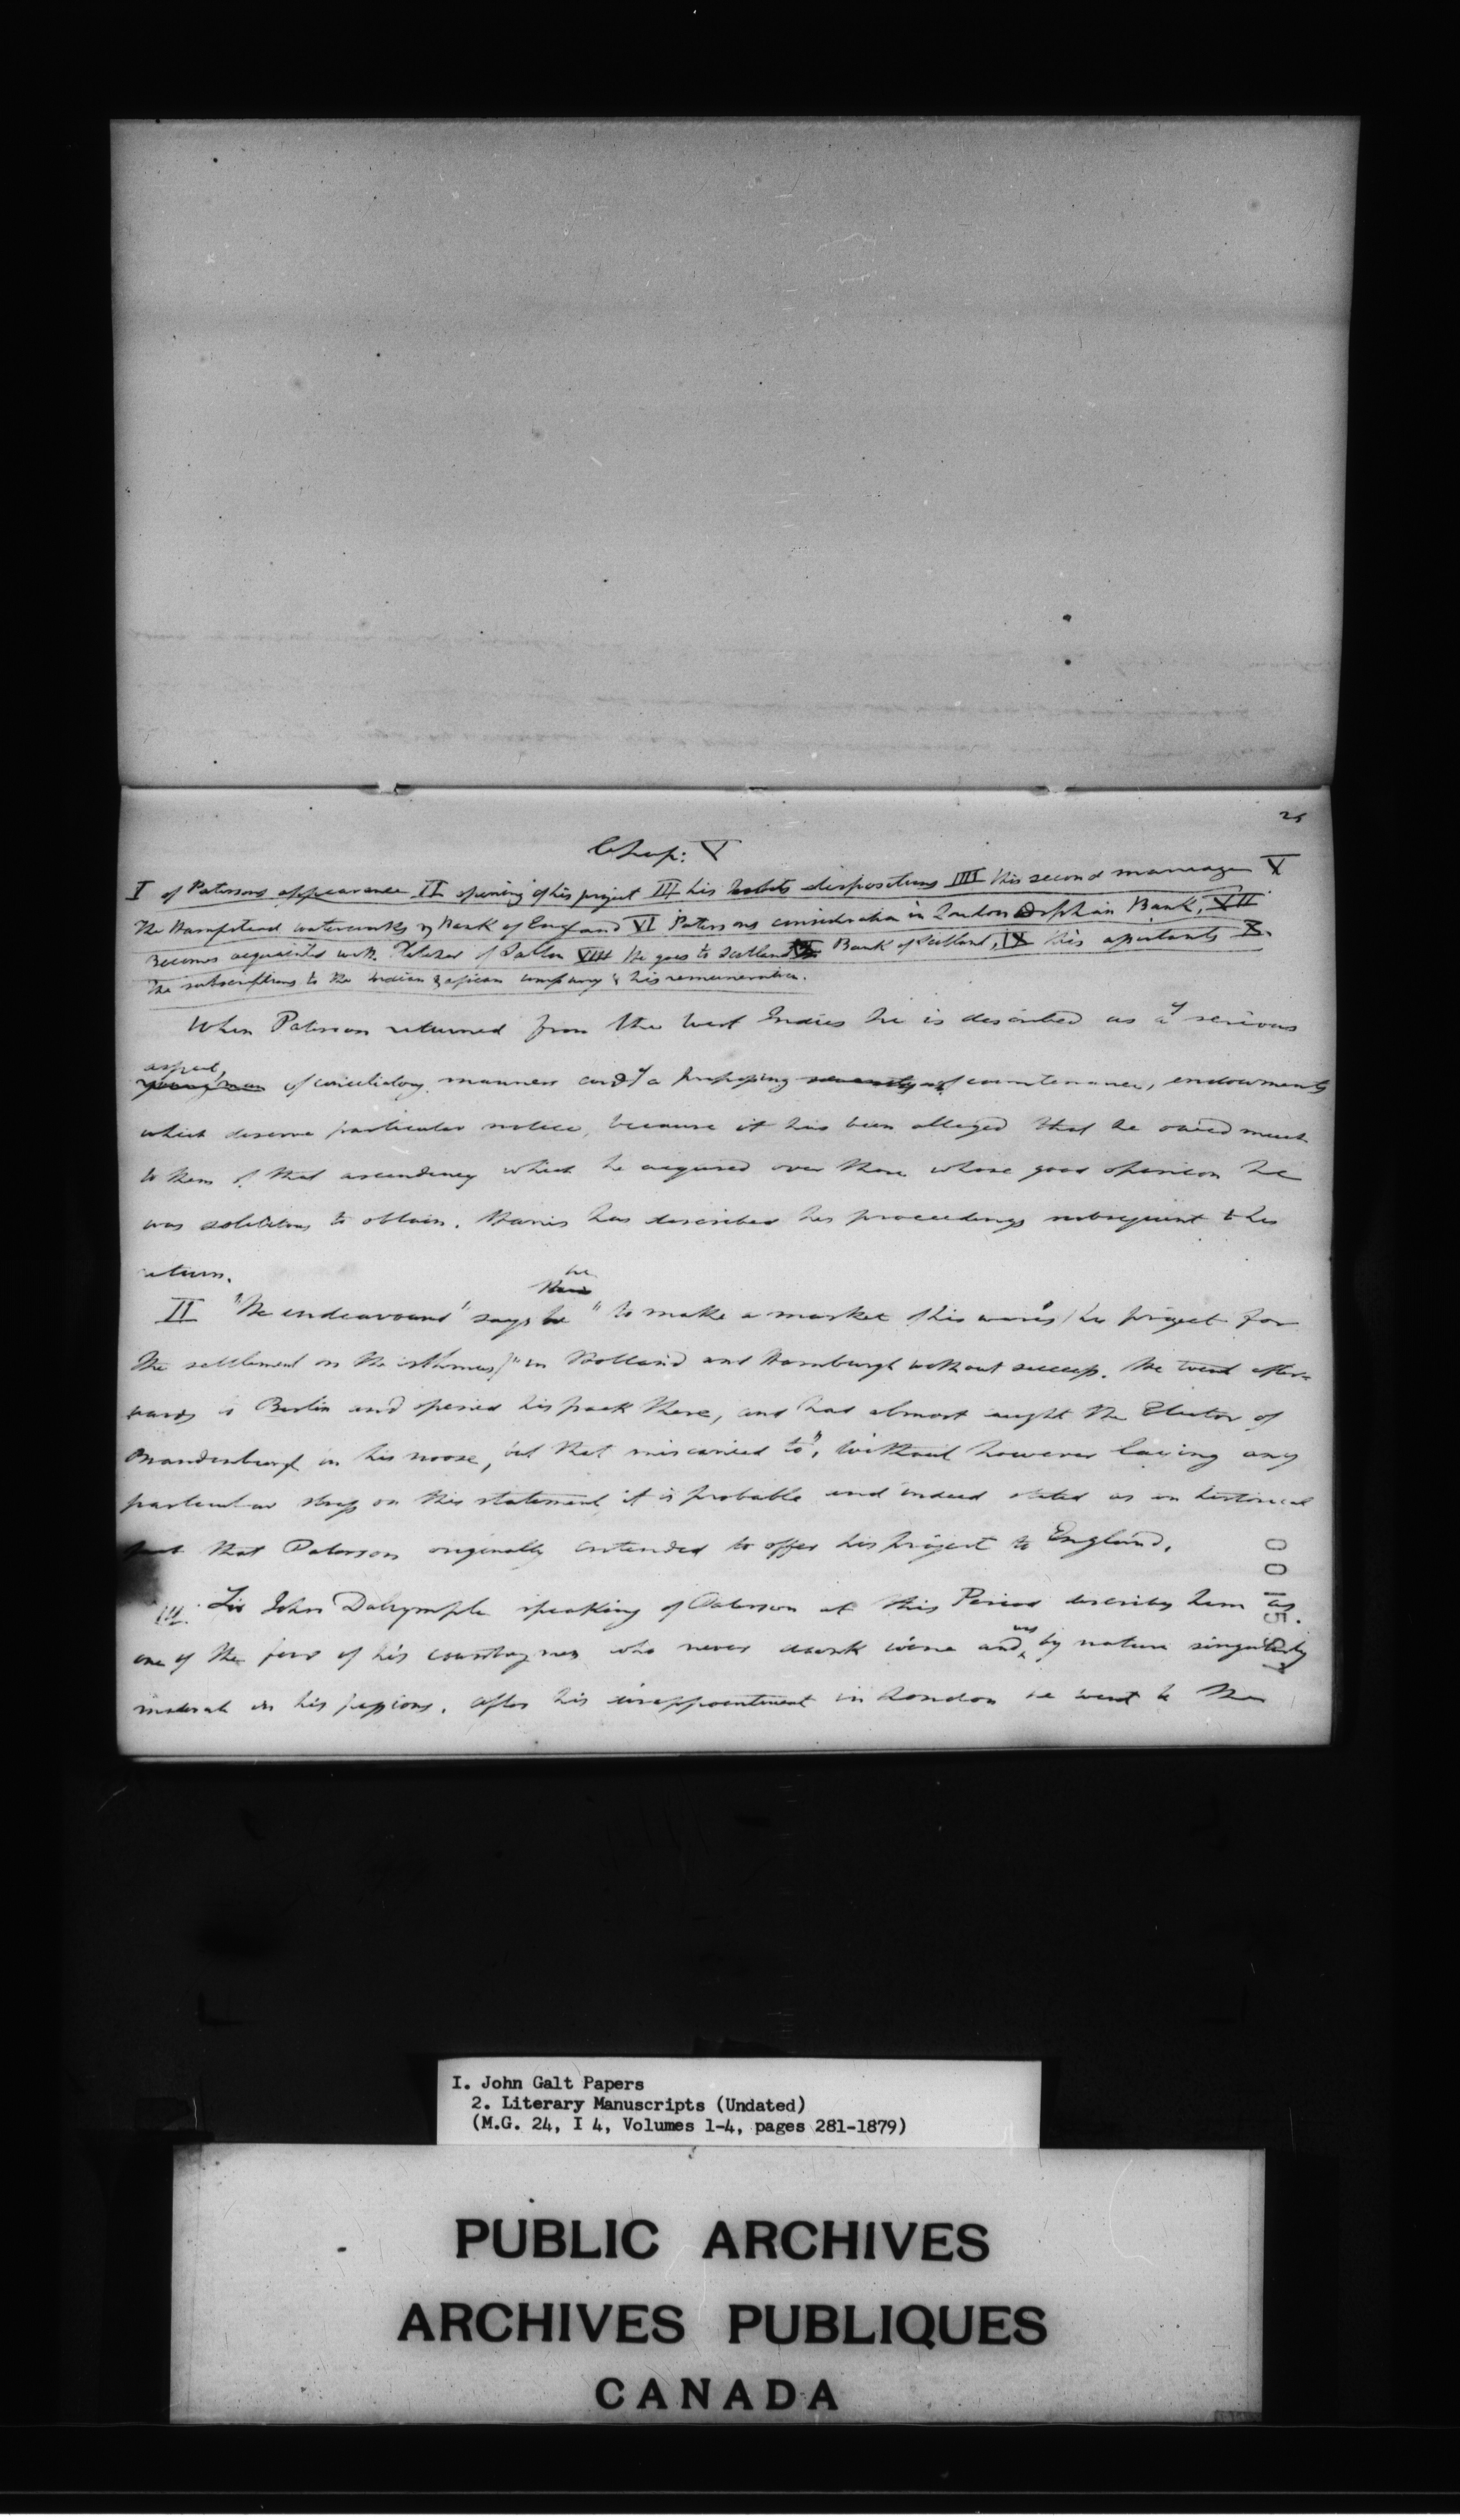 25
Chap: V
I of Patersons appearance II opening of his project III his habits dispositions IIII His second marriage V
The Hampstead waterworks & Bank of England VI Patersons consideration in London Orphan Bank, VII
Becomes acquainted with Fletcher of Salton VIII He goes to Scotland Bank of Scotland, IX His X.
The subscriptions to the Indian & african company & his remuneration.
When Paterson returned from the West Indies he is described as of a serious
aspect,
young man of conciliatory manners and of a prepossing countenance, endowments
which deserve particular notice, because it has been alleged that he owed much
to them of that ascendency which he acquired over those whose good opinion he
was solicitous to obtain. Harris has described his proceedings subsequent to his
return.
he
II "He endeavoured" says he "to make a market of his wares (his project for
the settlement on the isthmus)" in Holland and Hamburgh without success. He went after-
wards to Berlin and opened his pack there, and had almost caught the Elector of
Brandenburgh in his noose, but that miscarried to". Without however laying any
particular stress on this statement it is probable and indeed stated as an historical
fact that Paterson originally intended to offer his project to England.
III. Sir John Dalrymple speaking of Paterson at this Period describes him as
was
one of the few of his countrymen who never drank wine and by nature singularly
moderate in his passions. After his disappointment in London he went to the
I. John Galt Papers
2. Literary Manuscripts (Undated)
(M.G. 24, I 4, Volumes 1-4, pages 281-1879)
PUBLIC ARCHIVES
ARCHIVES PUBLIQUES
CANADA